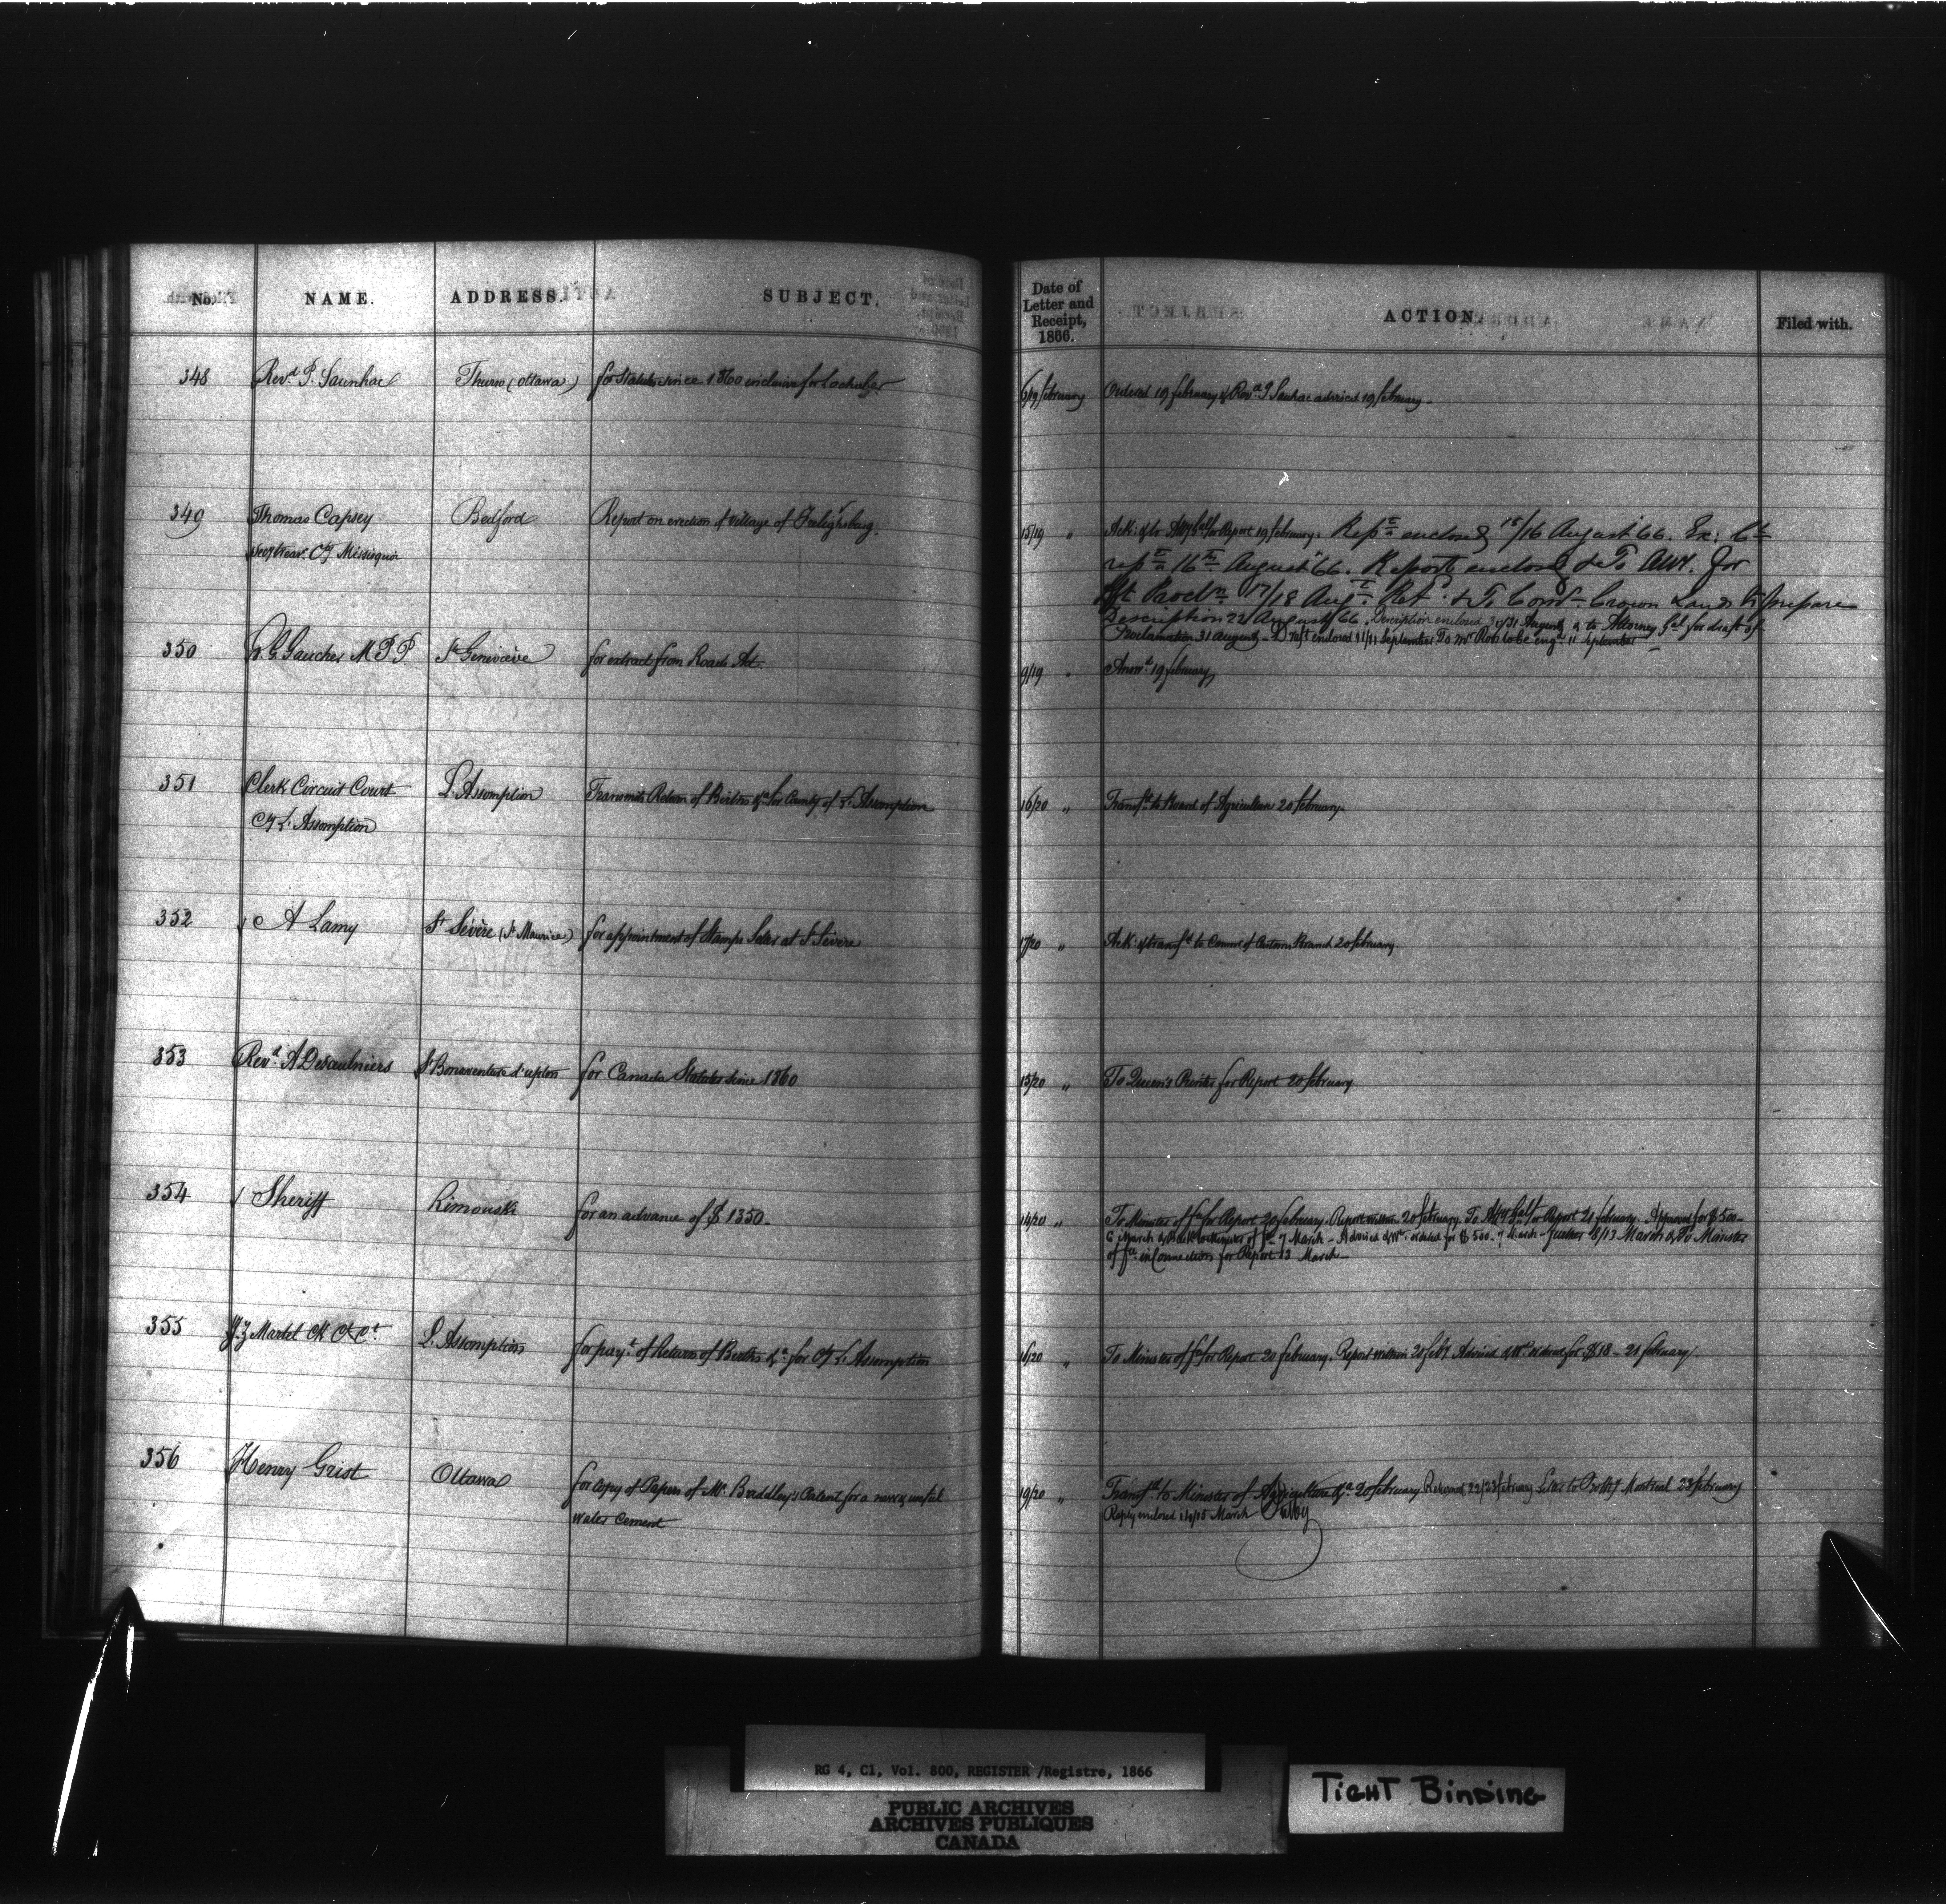 No.
NAME.
ADDRESS.
SUBJECT.
Date of
Letter and
Receipt,
1866.
ACTION.
Filed with.
348
Revd P. Saunhac
Thurso (Ottawa)
for Statutes since 1860 inclusive for Lochaber
6/19 february
Ordered 19 february & Revd P Saunhac advised 19 february
349
Thomas Capsey
Bedford
Report on erection of village of Freleighsburg.
Secy treas. Cy Missisquoi
15/19 "
Ack: & to Atty Gal for Report 19 february. Repn enclosed 15/16 August 66. Ex: C
16th August 66. Report enclosed & To Atty. for
17/18 Augt. & To Comr Crown Lands to prepare
Description 22 August 66. Description enclosed 30/31 August & to Attorney Gal for draft of
Proclamation 31 August - Draft enclosed 11/11 September To Mr to be engd 11 September
350
G. G. Gaucher M.P.P
St Geneviève
for extract from Roads Act.
9/19 "
Answd 19 february
351
Clerk Circuit Court
L'Assomption
Transmits Return of Births &a for County of L'Assomption
Cy L'Assomption
16/20 "
Transfd to Board of Agriculture 20 february.
352
A Lamy
St Sévère (St Maurice)
for appointment of Stamps Seller at St Sévère
17/20 "
Ack: & transfd to Commr of Customs Branch 20 february
353
Revd A Desaulniers
St Bonaventure d'upton
for Canada Statutes since 1860
15/20 "
To Queen's Printer for Report 20 february
354
Sheriff
Rimouski
for an advance of $ 1350.
14/20 "
To Minister of fce for Report 20 february. Report within 20 february. To Atty Gal for Report 21 february. Approved for $ 500
6 March & Back to Minister of fce 7 March - Advised & Wt. ordered for $ 500. 7 March - further 8/13 March & To Minister
of fce in Connection for Report 13 March
355
J. Z Martel Ck C Ct.
L'Assomption
for payt of Return of Births &a for Cy L'Assomption
16/20 "
To Minister of fce for Report 20 february. Report within 20 feby Advised & Wt ordered for $18 - 21 february
356
Henry Grist
Ottawa
for copy of Papers of Mr. Baddley's Patent for a new & useful
water cement
19/20 "
Transfd to Minister of Agriculture &a 20 february Returned 22/23 february Letter to Montreal 23 february
Reply enclosed 14/15 March
RG 4, C1, Vol. 800, REGISTER /Registre, 1866
PUBLIC ARCHIVES
ARCHIVES PUBLIQUES
CANADA
TIGHT BINDING